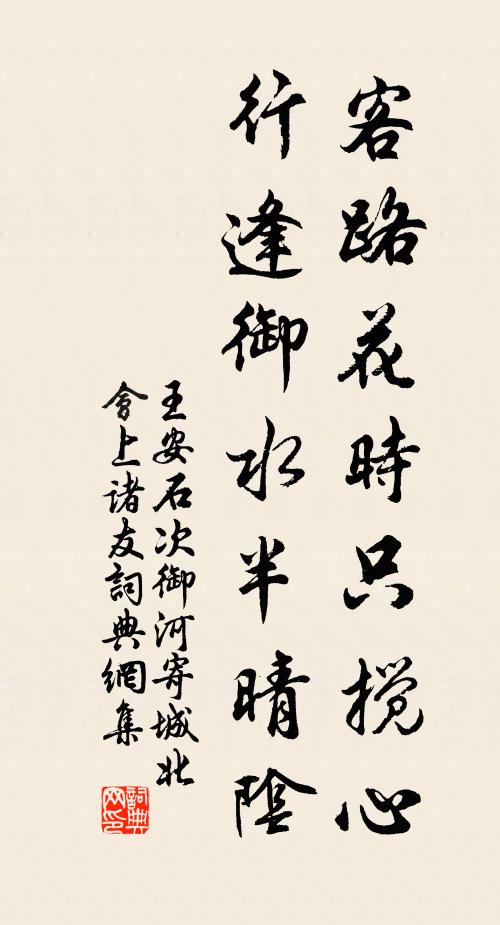 客路花時只攪心
行逢御水半晴陰
王安石次御河寄城北
會上诸友詞典網集
詞典网印